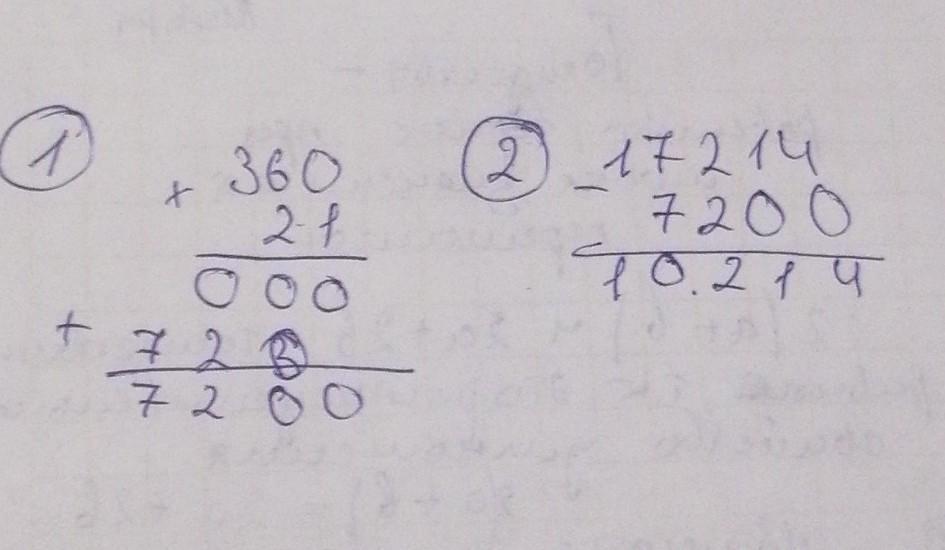 1
× 360
21
000
+ 720
7200
2
- 17214
7200
10.214